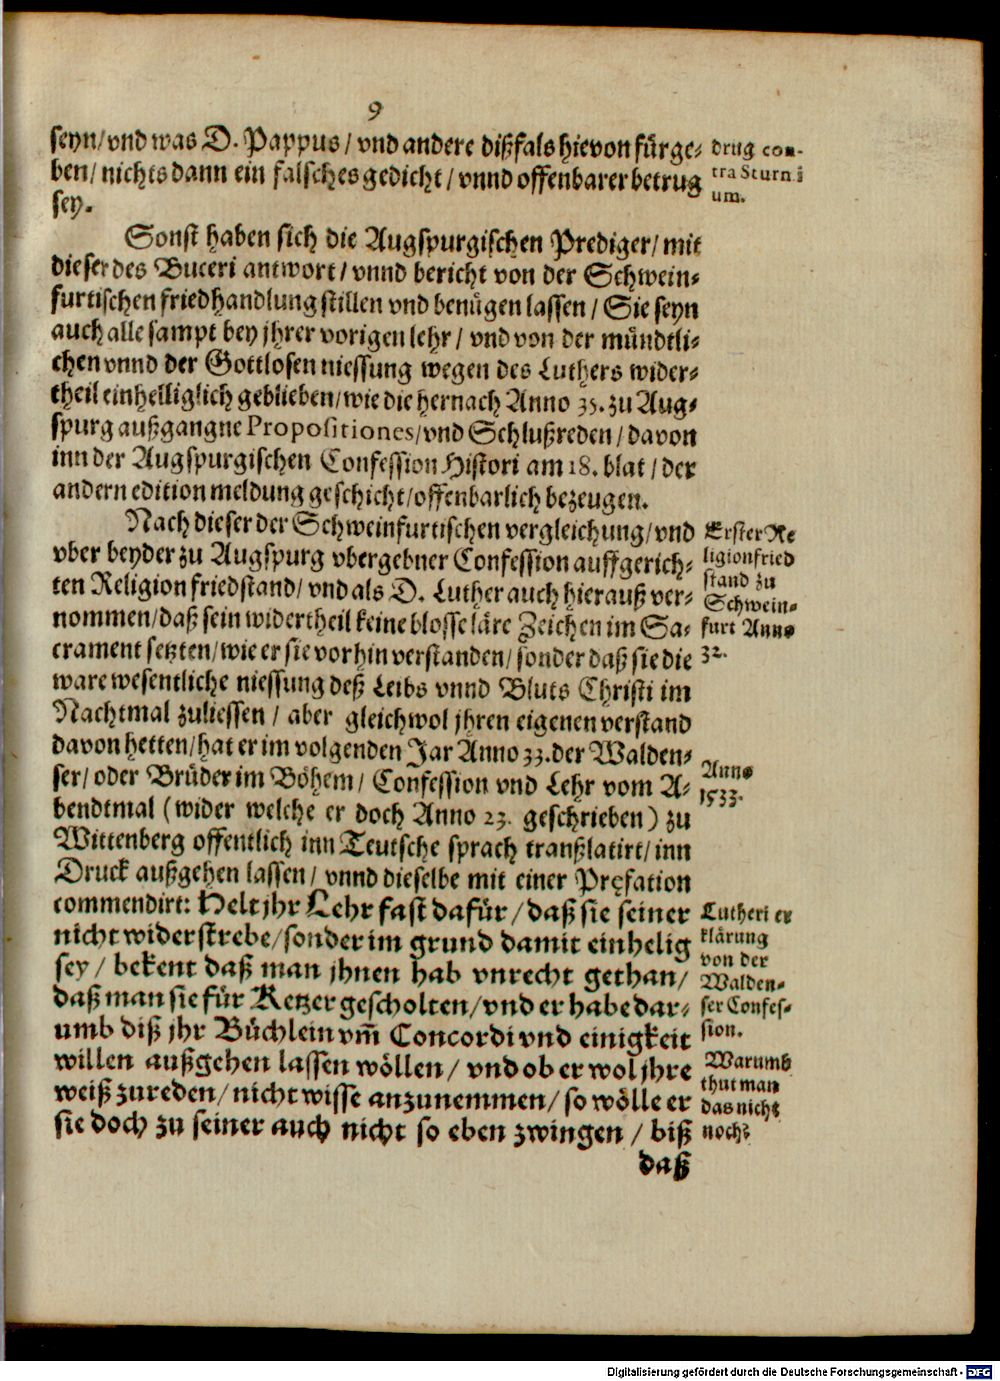 9
seyn/vnd was D. Pappus/ vnd andere dißfals hievon fürge-
ben/ nichts dann ein falsches gedicht/ vnnd offenbarer betrug
sey.
drug con-
tra Sturmi
um.
Sonst haben sich die Augspurgischen Prediger/ mit
dieser des Buceri antwort/ vnnd bericht von der Schwein-
furtischen friedhandlung stillen vnd benügen lassen/ Sie seyn
auch alle sampt bey jhrer vorigen lehr/ vnd von der mündtli-
chen vnnd der Gottlosen niessung wegen des Luthers wider-
theil einhelliglich geblieben/wie die hernach Anno 35. zu Aug-
spurg außgangne Propositiones/vnd Schlußreden/ davon
inn der Augspurgischen Confession Histori am 18. blat/ der
andern edition meldung geschicht/offenbarlich bezeugen.
Nach dieser der Schweinfurtischen vergleichung/vnd
vber beyder zu Augspurg vbergebner Confession auffgerich-
ten Religion friedstand/ vnd als D. Luther auch hierauß ver-
nommen/daß sein widertheil keine blosse läre Zeichen im Sa-
crament setzten/wie er sie vorhin verstanden/ sonder daß sie die
ware wesentliche niessung deß Leibs vnnd Bluts Christi im
Nachtmal zuliessen/ aber gleichwol jhren eigenen verstand
davon hetten/hat er im volgenden Jar Anno 33. der Walden-
ser/ oder Brüder im Böhem/ Confession vnd Lehr vom A-
bendtmal (wider welche er doch Anno 23. geschrieben) zu
Wittenberg offentlich inn Teutsche sprach tranßlatirt/inn
Druck außgehen lassen/ vnnd dieselbe mit einer Pręfation
commendirt: Helt jhr Lehr fast dafür/daß sie seiner
nicht widerstrebe/sonder im grund damit einhelig
sey/ bekent daß man jhnen hab vnrecht gethan/
daß man sie für Ketzer gescholten/vnd er habe dar-
umb diß jhr Büchlein vm̄ Concordi vnd einigkeit
willen außgehen lassen wöllen/ vnd ob er wol jhre
weiß zureden/nicht wisse anzunemmen/so wölle er
sie doch zu seiner auch nicht so eben zwingen/ biß
daß
Erster Re
ligionfried
stand zu
Schwein-
furt Anno
32.
Anno
1533.
Lutheri er
klärung
von der
Walden-
ser Confes-
sion.
Warumb
thut man
das nicht
noch?
Digitalisierung gefördert durch die Deutsche Forschungsgemeinschaft - DFG